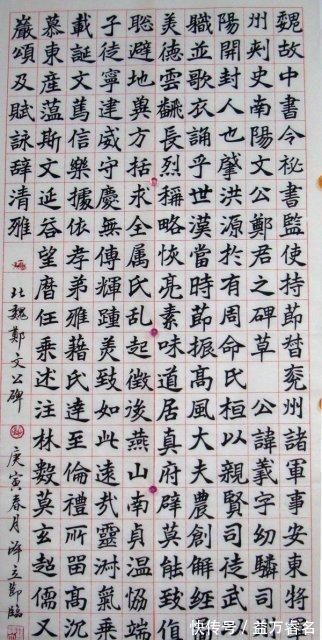 魏故中書令祕書監使持節督兗州諸軍事安東將
州刾史南陽文公鄭君之碑草 公諱羲字幼驎司
陽開封人也肇洪源於有周命氏桓以親賢司徒武
職並歌衣誦乎世漢當時節振髙風大夫農創解経
美德雲翻長烈稱略恢亮素味道居真府辟莫能致
聡避地兾方括求全属氏乱起徴淡燕山南貞温恊端
子徒寧建威守慶無傅輝踵羙致如此逺㢤靈渊氣乗
載誕文蔦信樂據依孝弟雅藉氏達至倫禮所畱髙沉
慕東産薀斯文延谷望磨任乗述注林數莫玄超儒又
巖頌及賦詠辞清雅
北魏鄭文公碑 庚寅春月 立節臨
快传号/益万睿名